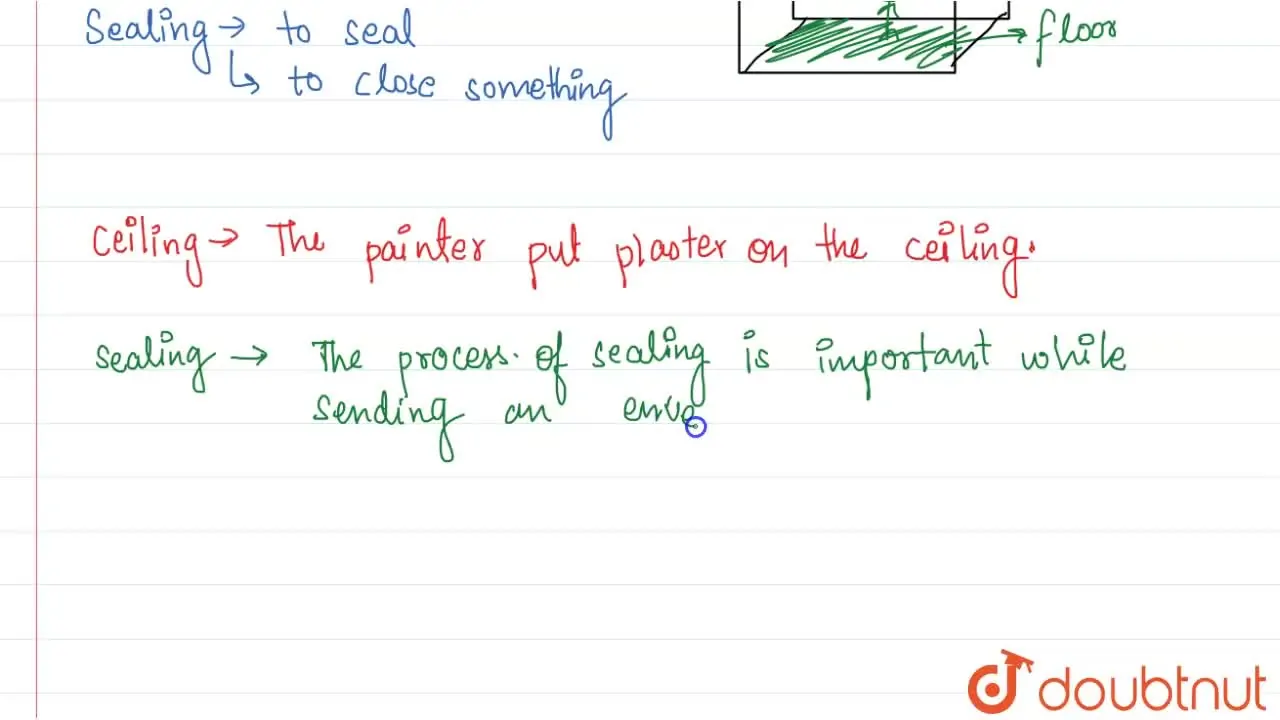 Sealing → to seal
↳ to close something
floor
Ceiling → The painter put plaster on the ceiling.
Sealing → The process of sealing is important while
sending an enve
doubtnut